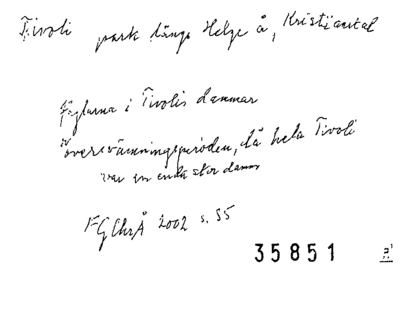 Tivoli park längs Helge å, Kristianstad
Fåglarna i Tivolis dammar
översvämningsperioden, då hela Tivoli
var en enda stor damm
FGChrÅ 2002 s. 55
35851